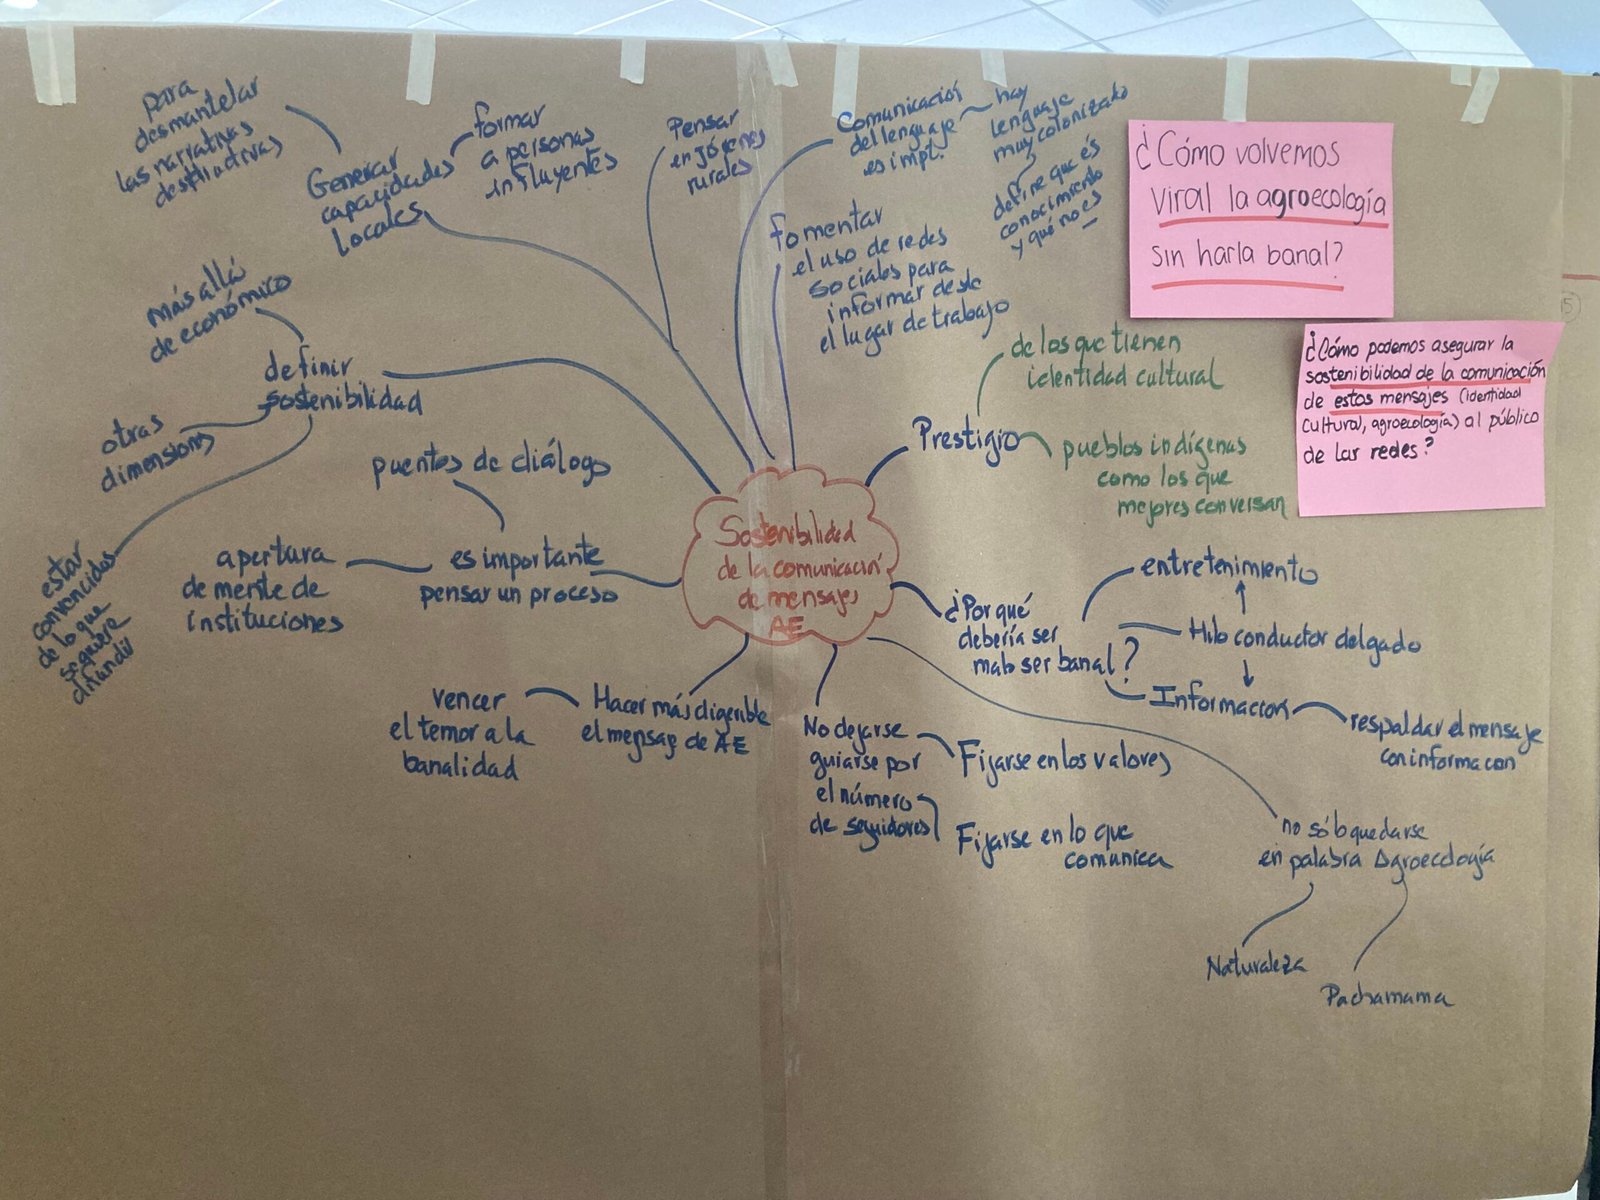 para
desmantelar
las narrativas
destructivas
Generar
capacidades
locales
formar
a personas
influyentes
Pensar
en jóvenes
rurales
Comunicación
del lenguaje
es impt.
hay
lenguaje
muy colonizado
define que és
conocimiento
y qué no es
fomentar
el uso de redes
sociales para
informar desde
el lugar de trabajo
¿Cómo volvemos
viral la agroecología
sin harla banal?
¿Cómo podemos asegurar la
sostenibilidad de la comunicación
de estos mensajes (identidad
cultural, agroecología) al público
de las redes?
más allá
de económico
definir
sostenibilidad
otras
dimensions
estar
convencidos
de lo que
se quiere
difundir
puentes de diálogo
es importante
pensar un proceso
apertura
de mente de
instituciones
Sostenibilidad
de la comunicación
de mensajes
AE
Prestigio
de los que tienen
identidad cultural
pueblos indígenas
como los que
mejores conversan
¿Por qué
debería ser
malo ser banal?
entretenimiento
Hilo conductor delgado
Informacion
respaldar el mensaje
con informacon
Hacer más digerible
el mensaj de AE
vencer
el temor a la
banalidad
No dejarse
guiarse por
el número
de seguidores
Fijarse en los valores
Fijarse en lo que
comunica
no sólo quedarse
en palabra Agroecología
Naturaleza
Pachamama